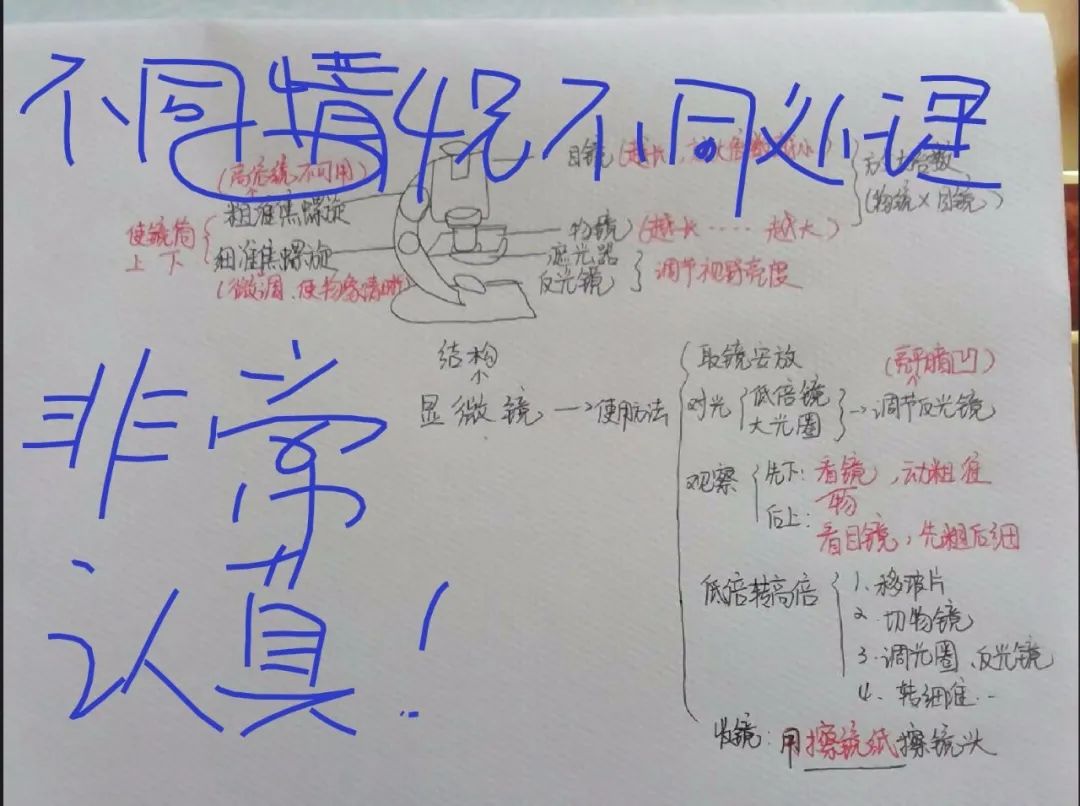 不同情况不同处理
(高倍镜不可用)
目镜(越长,
(物镜×目镜)
粗准焦螺旋
使镜筒
上下
物镜(越长……越大)
细准焦螺旋
遮光器
反光镜
调节视野亮度
(微调、使物象清晰)
结构
显微镜→使用方法
取镜安放
(亮平暗凹)
对光
低倍镜
大光圈
→调节反光镜
观察
先下:看镜,动粗准
物
后上:
看目镜,先粗后细
低倍转高倍
1.移玻片
2.切物镜
3.调光圈、反光镜
4.转细准…
收镜:用擦镜纸擦镜头
非常
认真!